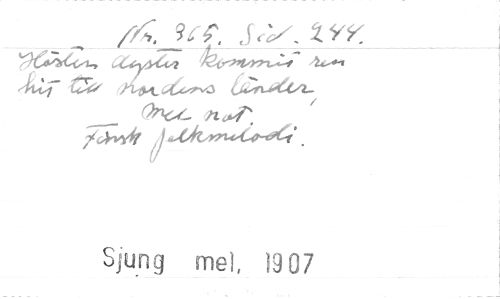 Nr. 365. Sid. 244.
Hösten dyster kommit ren
hit till nordens länder,
Med not.
Finsk folkmelodi.
Sjung mel, 1907